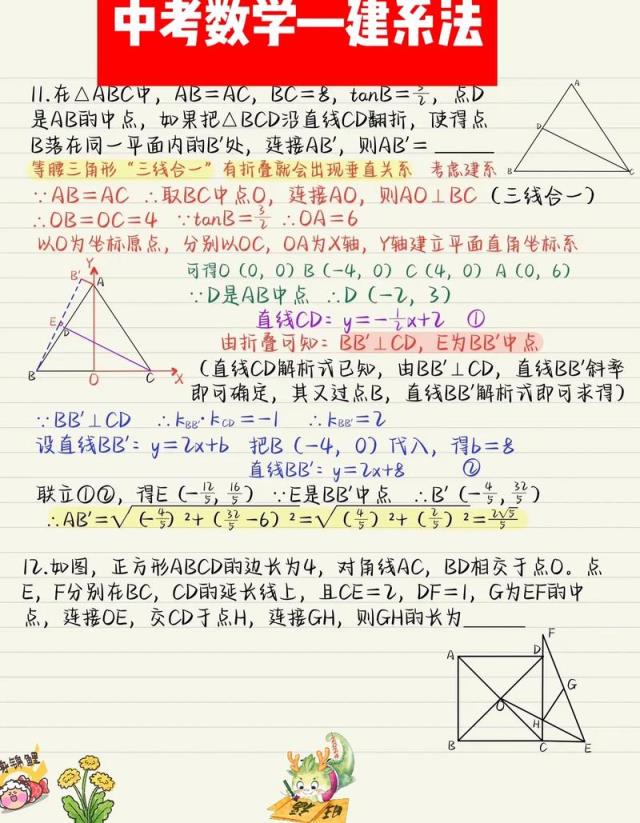 中考数学—建系法
11.在△ABC中，AB=AC，BC=8，tanB=3/2，点D
是AB的中点，如果把△BCD沿直线CD翻折，使得点
B落在同一平面内的B′处，连接AB′，则AB′=______
A
D
B
C
等腰三角形“三线合一”有折叠就会出现垂直关系 考虑建系
∵AB=AC ∴取BC中点O，连接AO，则AO⊥BC（三线合一）
∴OB=OC=4 ∵tanB=3/2 ∴OA=6
以O为坐标原点，分别以OC，OA为X轴，Y轴建立平面直角坐标系
Y
B′
A
E
D
B
O
C
X
可得O（0，0）B（-4，0）C（4，0）A（0，6）
∵D是AB中点 ∴D（-2，3）
直线CD：y=-1/2x+2 ①
由折叠可知：BB′⊥CD，E为BB′中点
（直线CD解析式已知，由BB′⊥CD，直线BB′斜率
即可确定，其又过点B，直线BB′解析式即可求得）
∵BB′⊥CD ∴kBB′·kCD=-1 ∴kBB′=2
设直线BB′：y=2x+b 把B（-4，0）代入，得b=8
直线BB′：y=2x+8 ②
联立①②，得E（-12/5，16/5） ∵E是BB′中点 ∴B′（-4/5，32/5）
∴AB′=√(-4/5)²+(32/5-6)²=√(4/5)²+(2/5)²=2√5/5
12.如图，正方形ABCD的边长为4，对角线AC，BD相交于点O。点
E，F分别在BC，CD的延长线上，且CE=2，DF=1，G为EF的中
点，连接OE，交CD于点H，连接GH，则GH的长为______
F
A
D
G
O
H
B
C
E
锦鲤